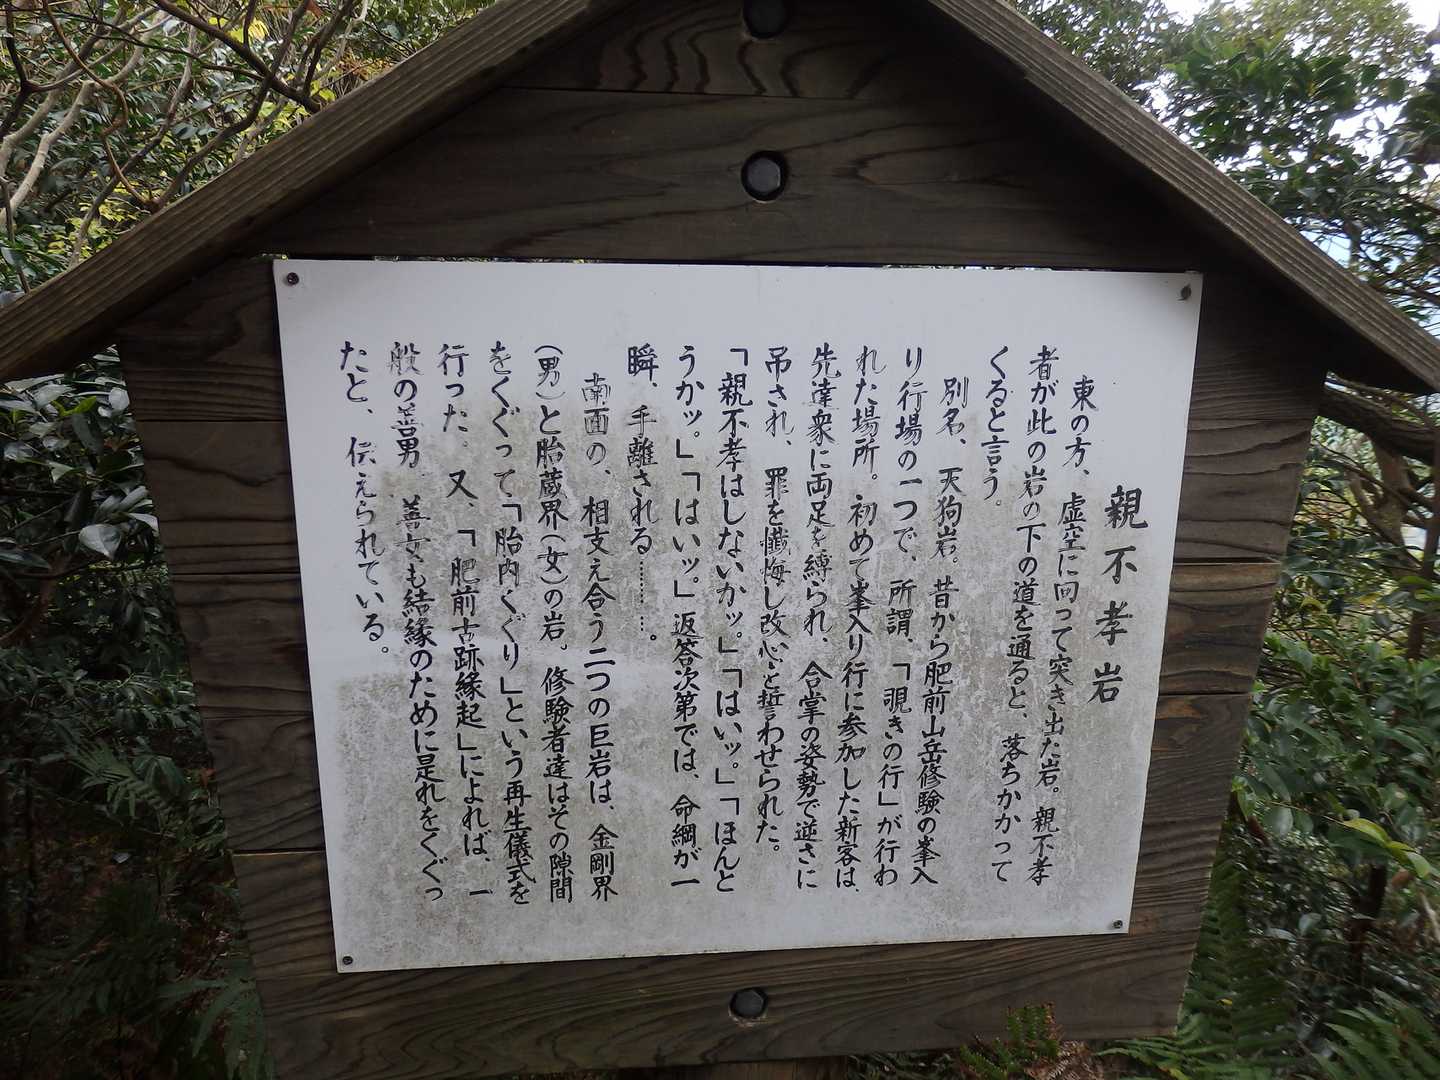 親不孝岩
東の方、虚空に向って突き出た岩。親不孝
者が此の岩の下の道を通ると、落ちかかって
くると言う。
別名、天狗岩。昔から肥前山岳修験の峯入
り行場の一つで、所謂、「覗きの行」が行わ
れた場所。初めて峯入り行に参加した新客は、
先達衆に両足を縛られ、合掌の姿勢で逆さに
吊され、罪を懺悔し改心を誓わせられた。
「親不孝はしないかッ。」「はいッ。」「ほんと
うかッ。」「はいッ。」返答次第では、命綱が一
瞬、手離される………。
南面の、相支え合う二つの巨岩は、金剛界
(男)と胎蔵界(女)の岩。修験者達はその隙間
をくぐって「胎内くぐり」という再生儀式を
行った。又、「肥前古跡縁起」によれば、一
般の善男 善女も結縁のために是れをくぐっ
たと、伝えられている。